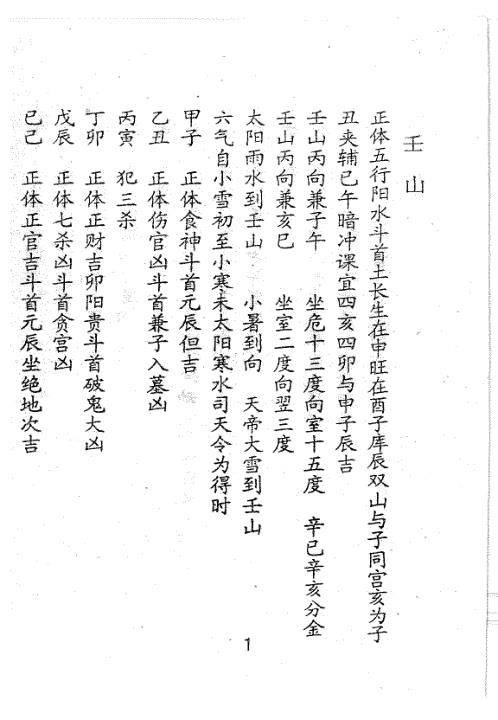 壬山
正体五行阳水斗首土长生在申旺在酉子库辰双山与子同宫亥为子
丑夹辅巳午暗冲课宜四亥四卯与申子辰吉
壬山丙向兼子午 坐危十三度向室十五度 辛巳辛亥分金
壬山丙向兼亥巳 坐室二度向翌三度
太阳雨水到壬山 小暑到向 天帝大雪到壬山
六气自小雪初至小寒未太阳寒水司天令为得时
甲子 正体食神斗首元辰但吉
乙丑 正体伤官凶斗首兼子入墓凶
丙寅 犯三杀
丁卯 正体正财吉卯阳贵斗首破鬼大凶
戊辰 正体七杀凶斗首贪官凶
已己 正体正官吉斗首元辰坐绝地次吉
1